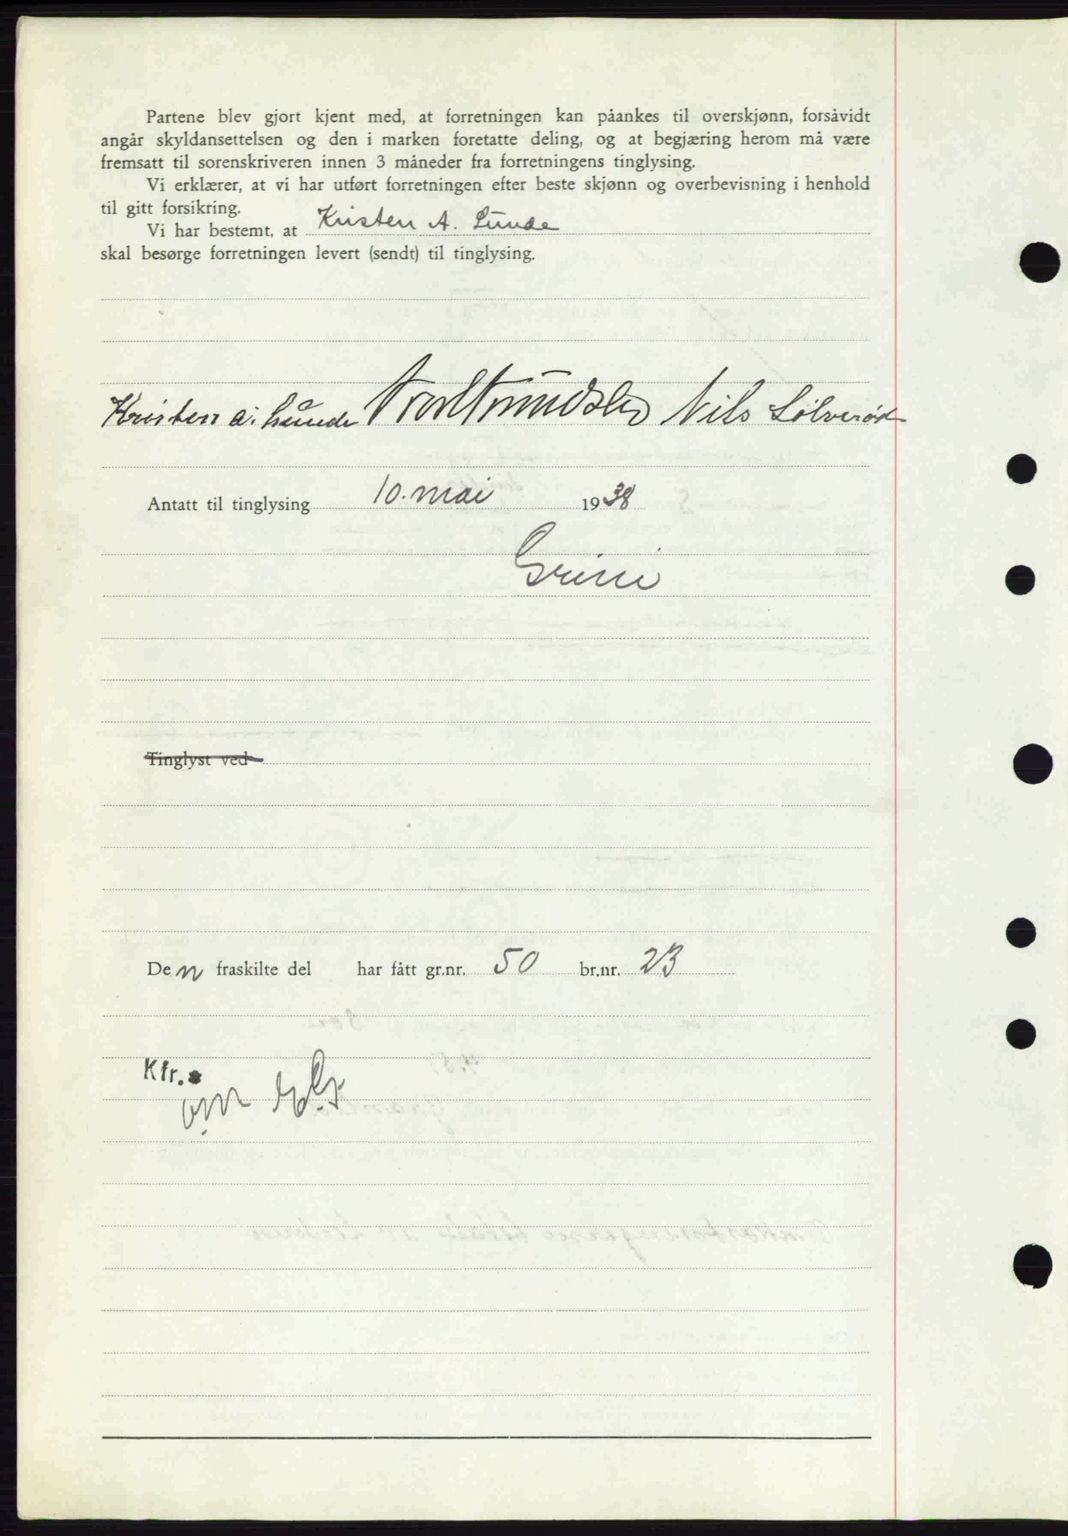 Partene blev gjort kjent med, at forretningen kan påankes til overskjønn, forsåvidt
angår skyldansettelsen og den i marken foretatte deling, og at begjæring herom må være
fremsatt til sorenskriveren innen 3 måneder fra forretningens tinglysing.
Vi erklærer, at vi har utført forretningen efter beste skjønn og overbevisning i henhold
til gitt forsikring.
Vi har bestemt, at Kristen A. Lunde
skal besørge forretningen levert (sendt) til tinglysing.
Kristen A. Lunde Nils Sølverød
Antatt til tinglysing 10. mai 1938
Grini
Tinglyst ved
Den fraskilte del har fått gr.nr. 50 br.nr. 23
Kfr.